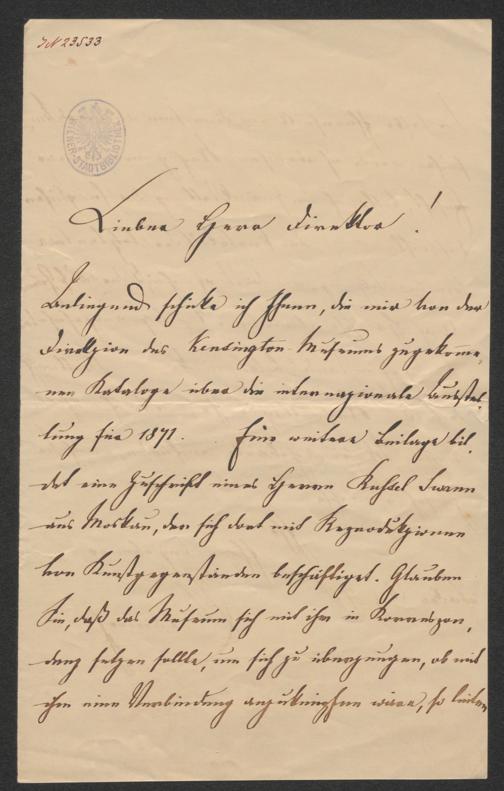 JN 23533
WIENER-STADTBIBLIOTHEK
Lieber Herr Direktor!
Beliegend schicke ich Ihnen, die mir von der
Direkzion des Kensington Museums zugekomme-
nen Kataloge über die internazionale Ausstel-
lung für 1871. Eine weitere Beilage bil-
det eine Zuschrift eines Herrn
aus Moskau, der sich dort mit Reproduktzionen
von Kunstgegenständen beschäftiget. Glauben
Sie, daß das Museum sich mit ihm in Korrespon-
denz setzen sollte, um sich zu überzeugen, ob mit
ihm eine Verbindung anzuknüpfen wäre, so